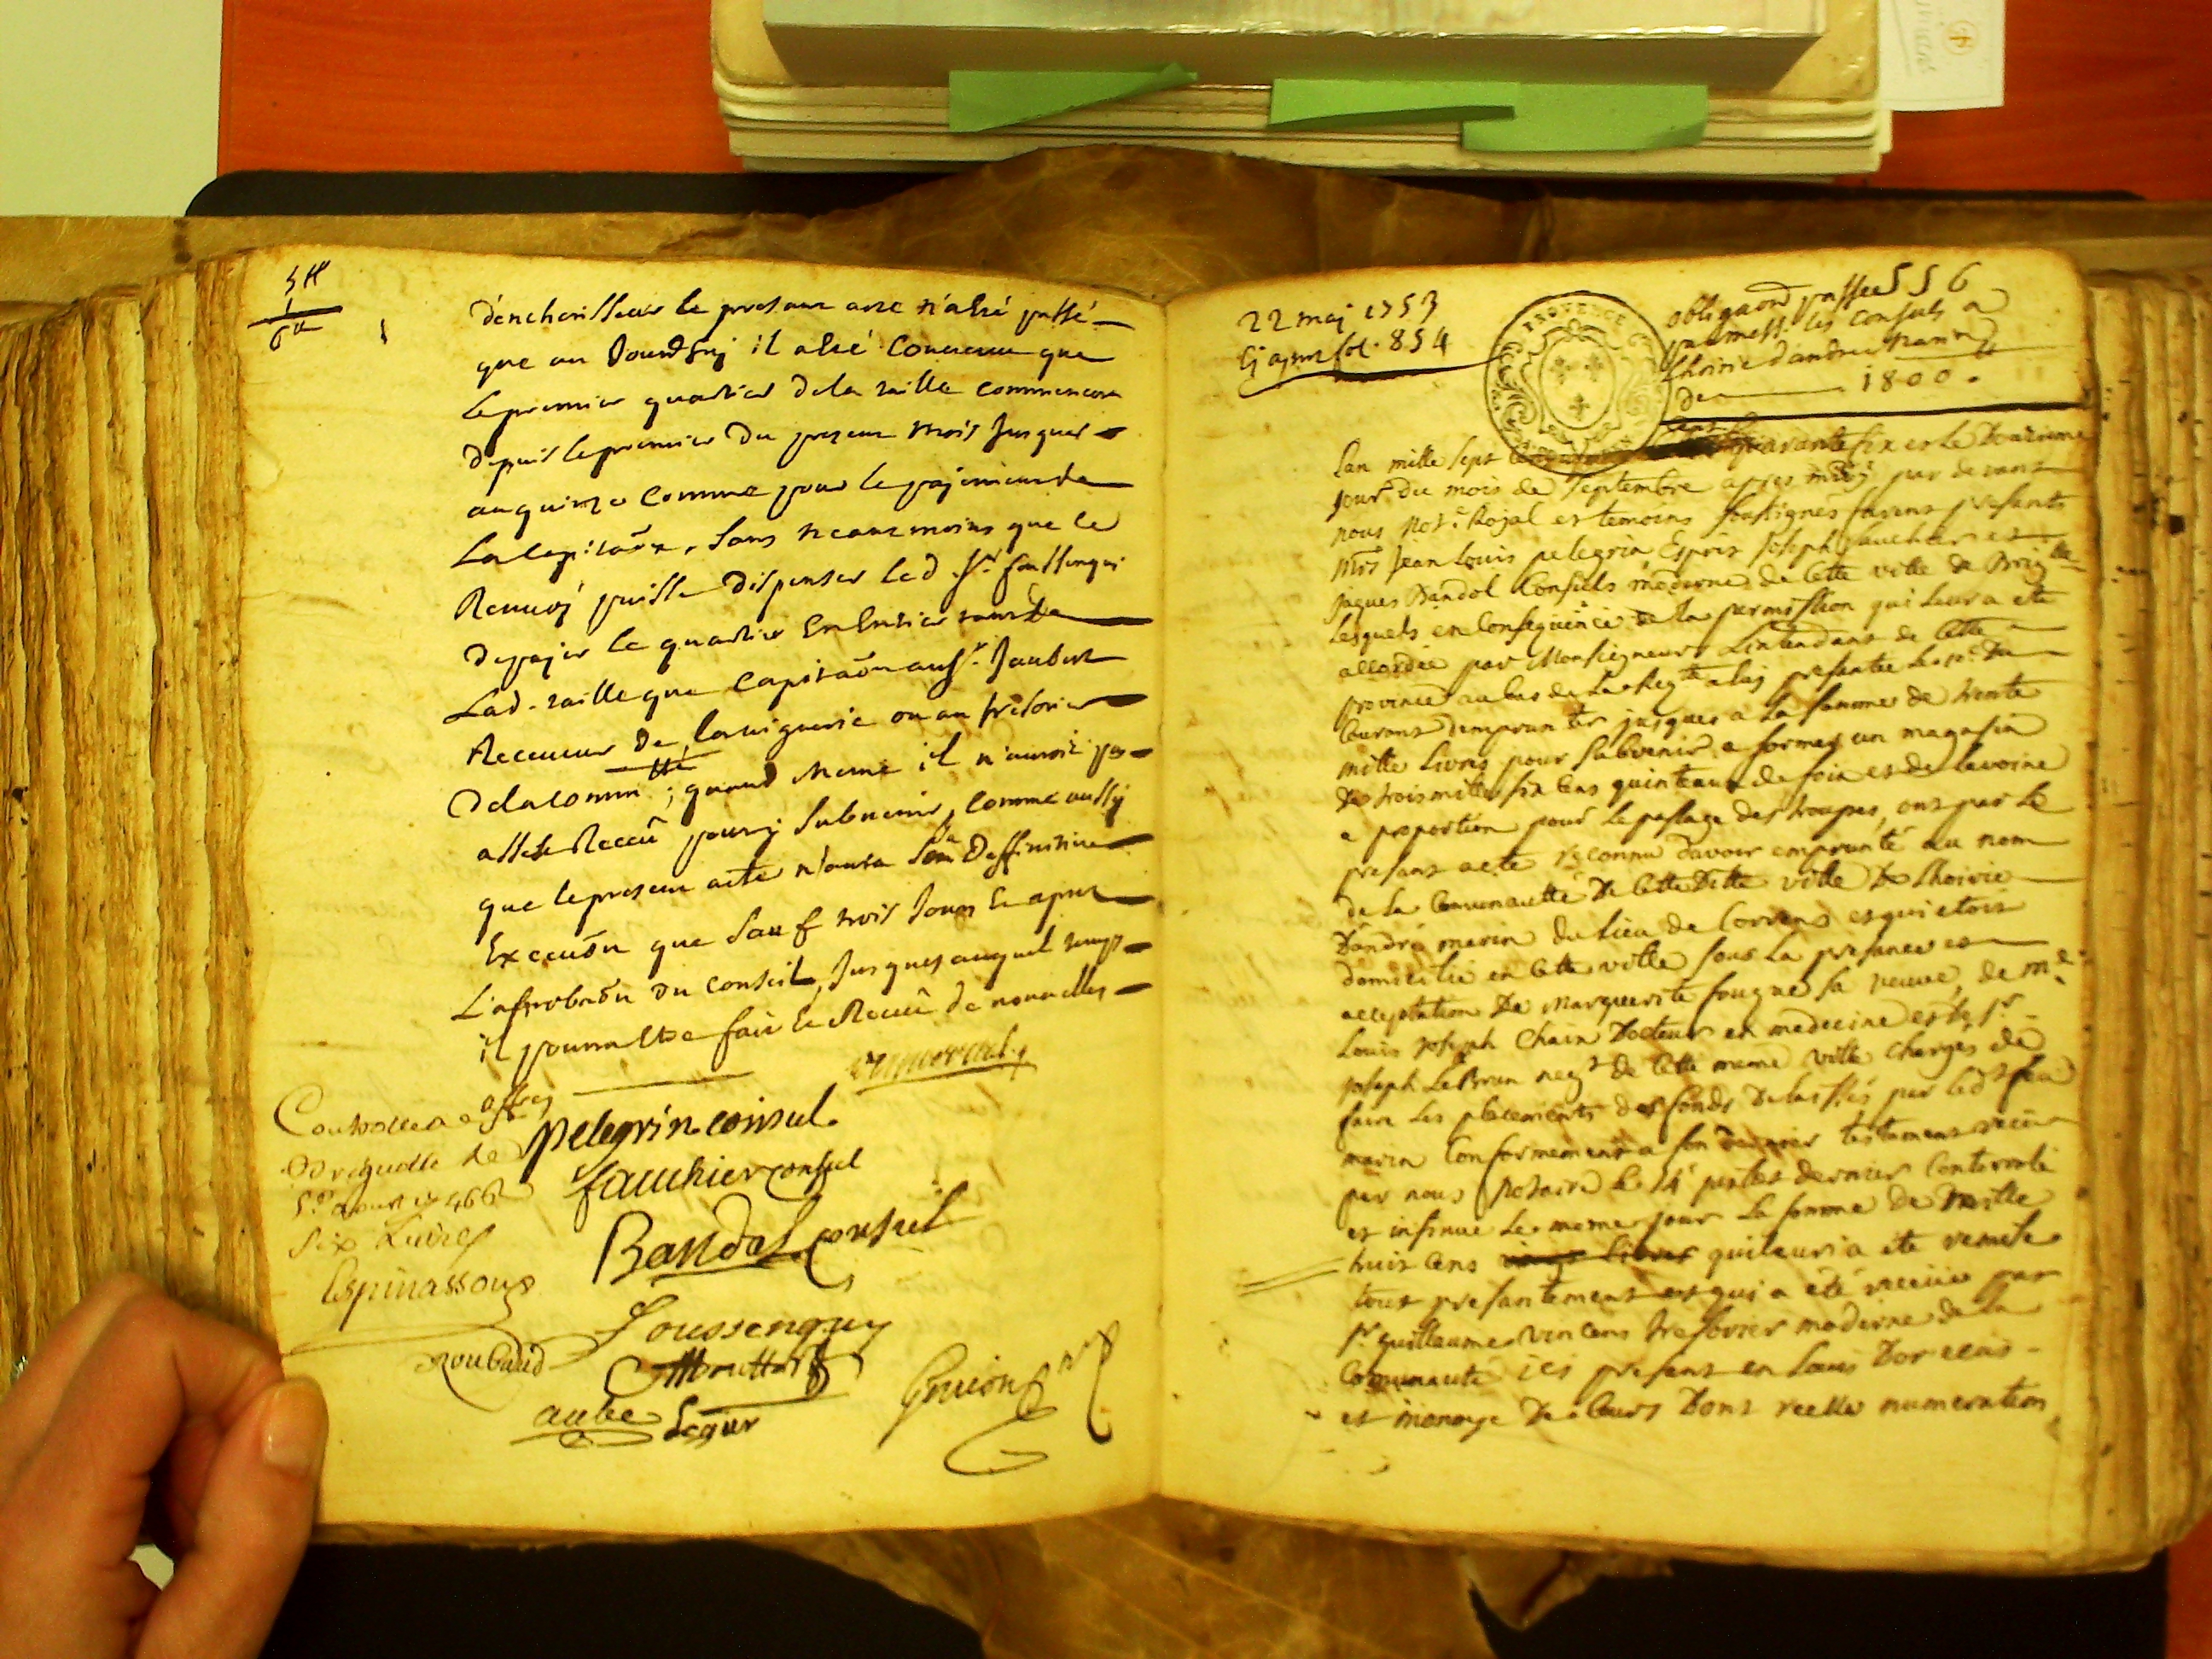 5#
1
6#
d'encherisseur le present acte n'a esté passé
que au Jourd'huj il a esté Convenu que
le premier quartier de la taille commencera
depuis le premier du present mois Jusques
au quinze comme pour le pajement de
la Capitaõn, sans neantmoins que le
puisse dispenser led. Sr. foussenqui
de pajer le quartier En Entier tant de
Lad. taille que Capitaõn au Sr. Jaubert
Receveur de la viguerie ou au tresorier
de la comm.té ; quand meme il n'auroit pas
assés Receu pour y subvenir, comme aussy
que le present acte n'aura son Deffinitive
Execuõn que sauf trois Jours Et apres
L'aprobaõn du Conseil, Jusques auquel temps
il pourra Etre fait Et Receu de nouvelles
offres
Controllé a
Brignolle le
466
Six Livres
Espinassoux
pelegrin consul
fauchier consul
Bandol consul
foussenquy
Roubaud
aube
Segur
22 maj 1753
fol. 854
PROVENCE
556
obligaõn passée
par mess.rs les consuls a
L'hoirie d'andré marin
de 1800.
Lan mille sept cens quarante six et le Douzieme
jour du mois de Septembre apres midy par devant
nous Not.e Rojal et temoins soussignés furent presents
Mrs Jean Louis pelegrin Esprit Joseph fauchier et
Jaques Bandol Consuls modernes de Cette ville de Brig.lle
Lesquels en Consequence de la permission qui leur a eté
accordée par Monseigneur L'intendant de Cette
province au bas de la Req.te a luy presentée le 10e. Du
Courant d'emprunter jusques a La somme de trente
mille Livres pour subvenir a former un magasin
de trois mille six Cens quinteaux de foin et de Lavoine
a proportion pour Le passage des troupes, ont par Le
present acte reconnu d'avoir emprunté au nom
de la Communauté De Cette Ditte ville De L'hoirie
D'andré marin du Lieu de Correns et qui etoit
domicilié en Cette ville sous La presance et
acceptation De Marguerite fougue sa veuve, de Me.
Louis Joseph Chaix Docteur en medecine et le Sr.
Joseph Le Brun neg.t de Cette meme ville Charges de
faire Les placements des fonds Delaissés par led.t feu
marin Conformement a son dernier testament receu
par nous Notaire le 14e juillet dernier Controllé
et insinué Le meme jour La somme De Mille
huit Cens qui leur a eté remise
tout presentement et qui a été receüe par
Sr. guillaume vincens tresorier moderne de La
Communauté ici present en Louis Dor
et monoye De Cours Dont reelle numeration